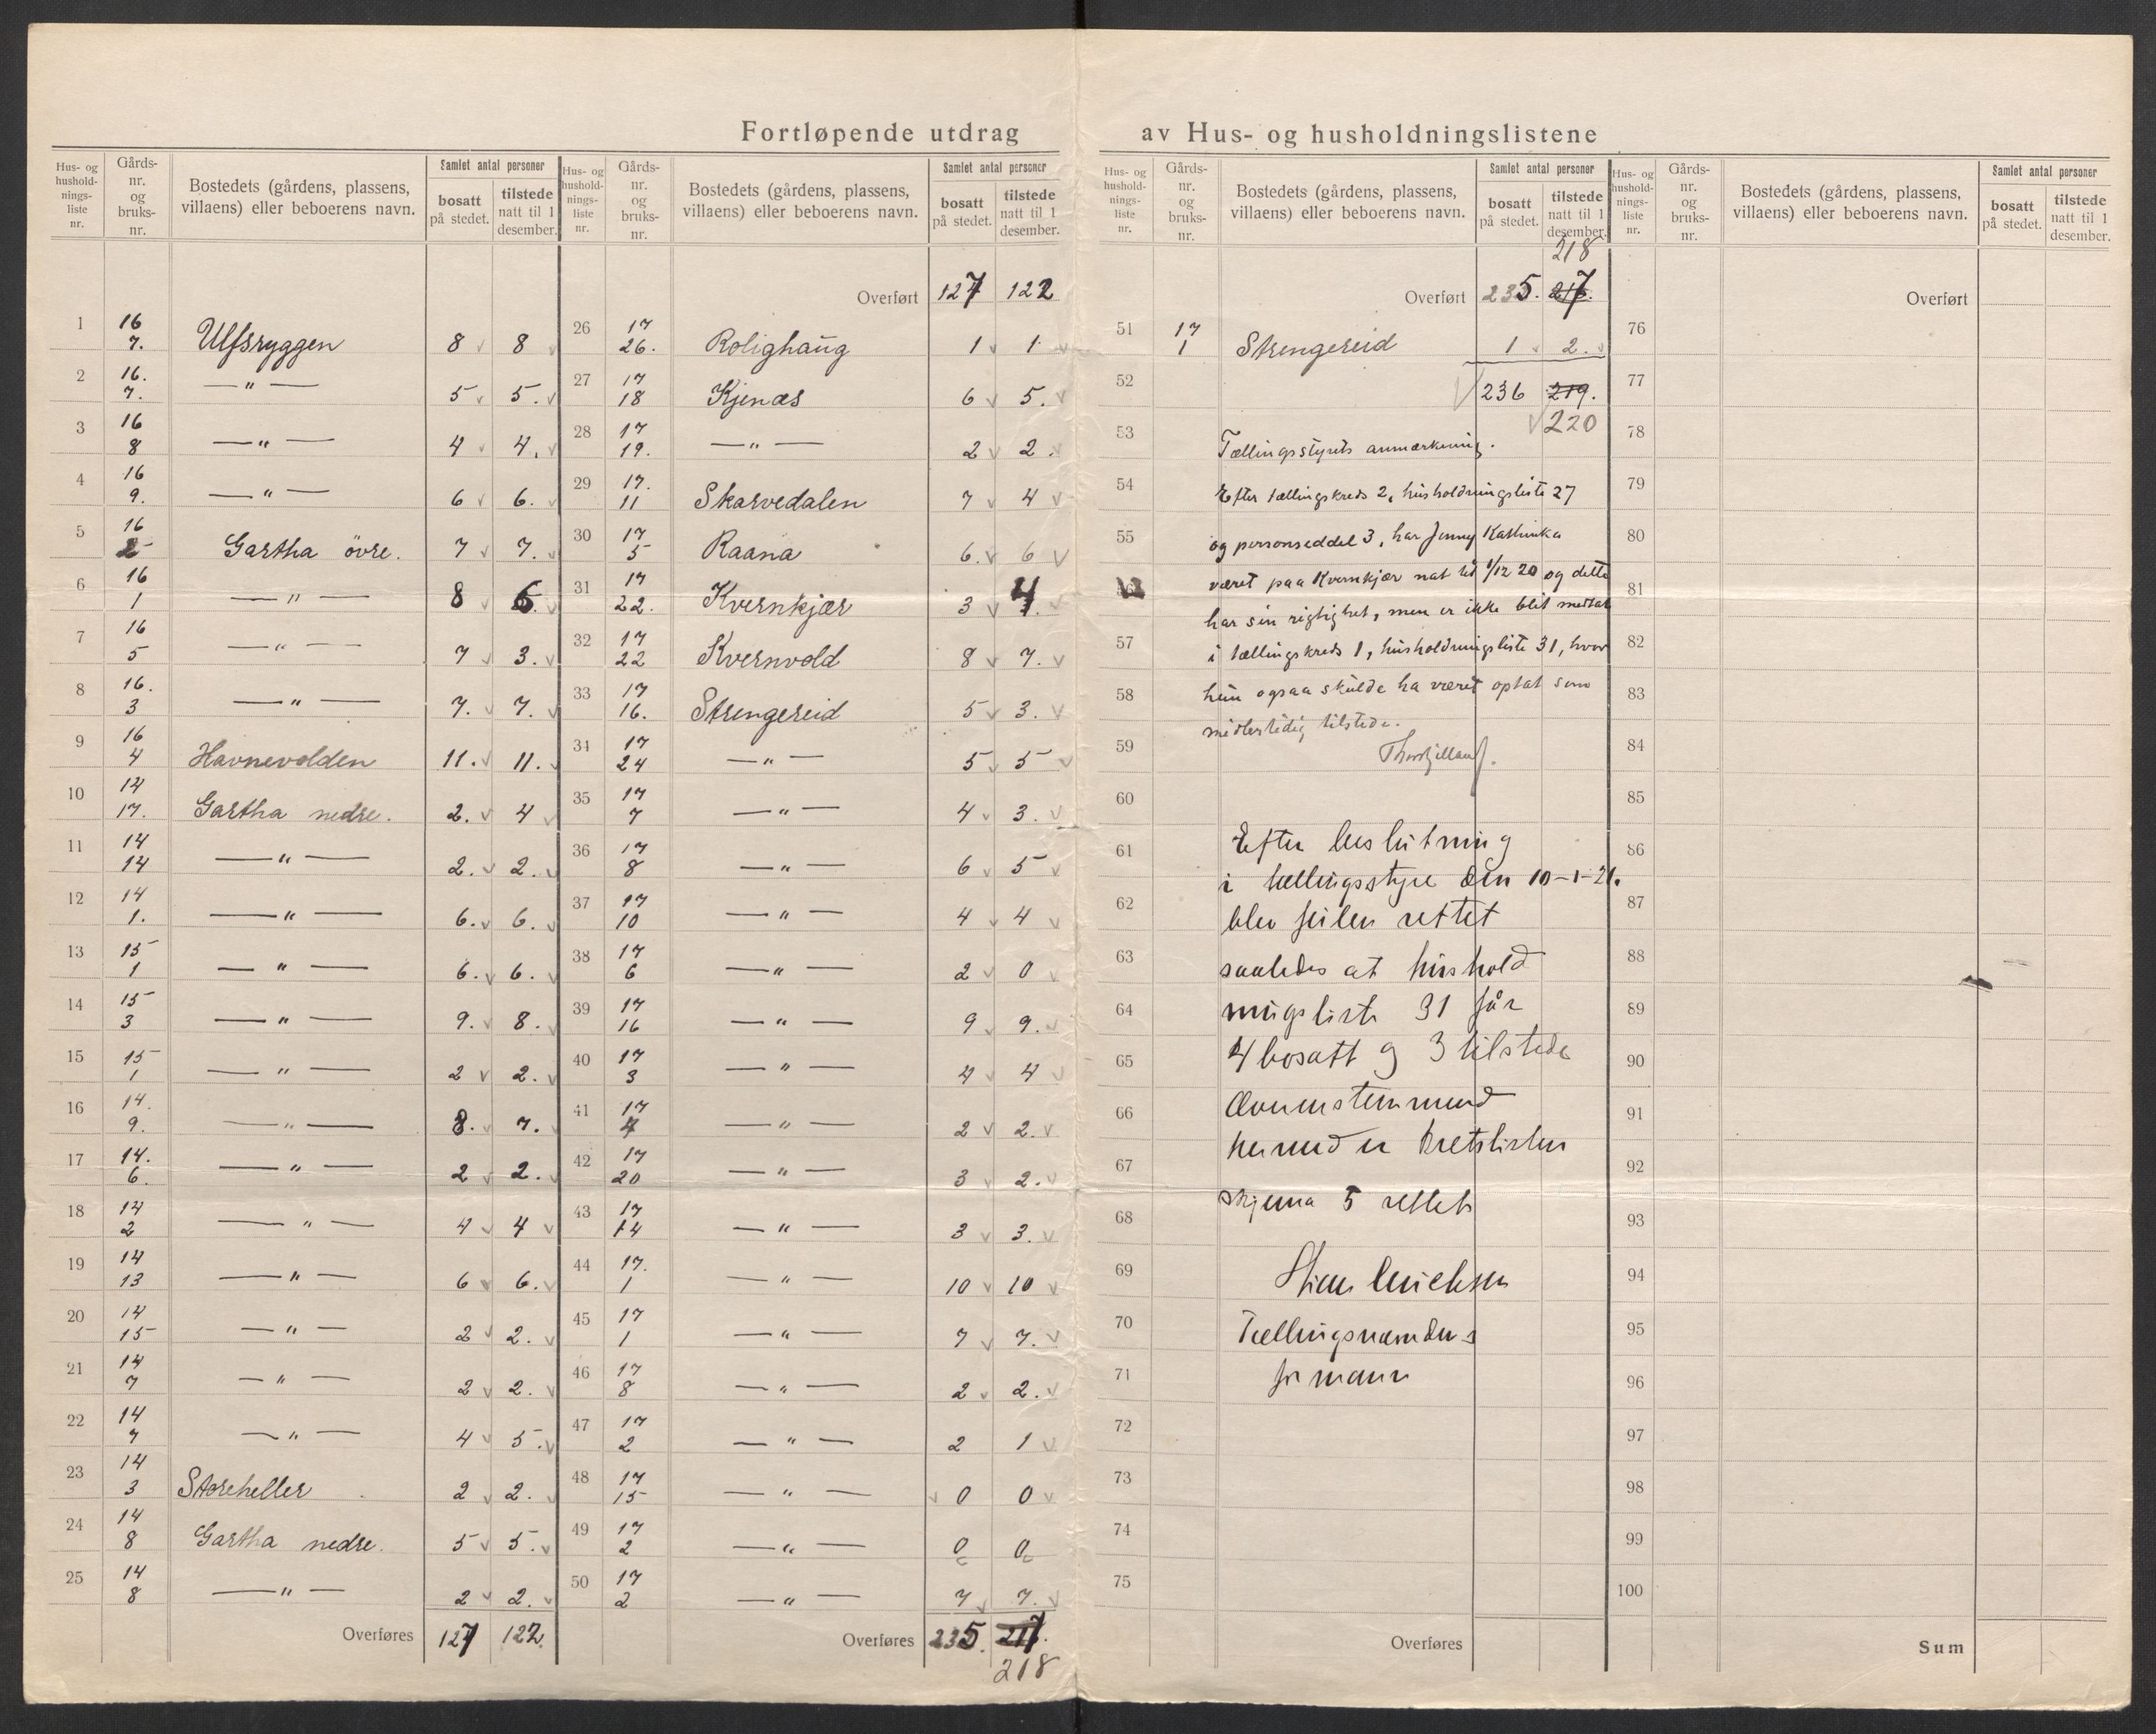 Fortløpende utdrag av Hus- og husholdningslistene
Hus- og hushold- nings- liste nr. | Gårds- nr. og bruks- nr. | Bostedets (gårdens, plassens, villaens) eller beboerens navn. | Samlet antal personer | bosatt på stedet. | tilstede natt til 1 desember.
1 16 7. Ulfsryggen 8 8
2 16. 7. — " — 5 5.
3 16 8 — " — 4 4.
4 16 9. — " — 6 6.
5 16 2 Gartha övre. 7 7.
6 16 1 — " — 8 6.
7 16 5 — " — 7 3.
8 16. 3 — " — 7. 7.
9 16 4 Havnevolden 11. 11.
10 14 17. Gartha nedre. 2. 4
11 14 14 — " — 2. 2.
12 14 1. — " — 6. 6.
13 15 1 — " — 6. 6.
14 15 3 — " — 9. 8.
15 15 1 — " — 2 2.
16 14. 9. — " — 8. 7.
17 14. 6. — " — 2 2.
18 14 2 — " — 4 4
19 14 13 — " — 6 6.
20 14 15 — " — 2 2.
21 14 7 — " — 2 2.
22 14 7 — " — 4 5.
23 14 3 Storeheller 2 2.
24 14 8 Gartha nedre. 5 5.
25 14 8 — " — 2 2.
Overføres 127 122.
Hus- og hushold- nings- liste nr. | Gårds- nr. og bruks- nr. | Bostedets (gårdens, plassens, villaens) eller beboerens navn. | Samlet antal personer | bosatt på stedet. | tilstede natt til 1 desember.
Overført 127 122
26 17 26. Rolighaug 1 1
27 17 18 Kjenæs 6 5.
28 17 19. — " — 2 2.
29 17. 11 Skarvedalen 7 4
30 17 5 Raana 6. 6
31 17 22. Kvernkjær 3 4.
32 17 22 Kvernvold 8 7.
33 17 16. Strengereid 5 3.
34 17 24 — " — 5 5
35 17 7 — " — 4 3.
36 17 8 — " — 6 5
37 17 10 — " — 4 4
38 17 6 — " — 2 0
39 17 16 — " — 9 9.
40 17 3 — " — 4 4
41 17 4 — " — 2 2.
42 17 20 — " — 3 2.
43 17 14 — " — 3 3.
44 17. 1 — " — 10 10
45 17 1 — " — 7 7.
46 17 8 — " — 2 2.
47 17 2 — " — 2 1
48 17 15 — " — 0 0
49 17 2 — " — 0 0
50 17 2 — " — 7 7.
Overføres 235. 217.
218
Hus- og hushold- nings- liste nr. | Gårds- nr. og bruks- nr. | Bostedets (gårdens, plassens, villaens) eller beboerens navn. | Samlet antal personer | bosatt på stedet. | tilstede natt til 1 desember.
218
Overført 235. 217.
51 17 1 Strengereid 1 2.
52 236 219.
220
53 Tællingsstyrets anmærkning.
54 Efter tællingskreds 2, husholdningsliste 27
55 og personseddel 3, har Jenny Kathinka
været paa Kvernkjær nat til 1/12 20 og dette
har sin rigtighet, men er ikke blit medtat
57 i tællingskreds 1, husholdningsliste 31, hvor
58 hun ogsaa skulde ha været optat som
midlertidig tilstede.
59
60
61 Efter beslutning
i tællingsstyre den 10-1-21.
62 blev feilen rettet
63 saaledes at hushold
64 ningsliste 31 får
65 4 bosatt og 3 tilstede
66 Overenstemmend
67 hermed er kretslisten
68 skjema 5 rettet
69
70 Tællingsnemdens
71 formann
72
73
74
75
Overføres
Hus- og hushold- nings- liste nr. | Gårds- nr. og bruks- nr. | Bostedets (gårdens, plassens, villaens) eller beboerens navn. | Samlet antal personer | bosatt på stedet. | tilstede natt til 1 desember.
Overført
76
77
78
79
80
81
82
83
84
85
86
87
88
89
90
91
92
93
94
95
96
97
98
99
100
Sum